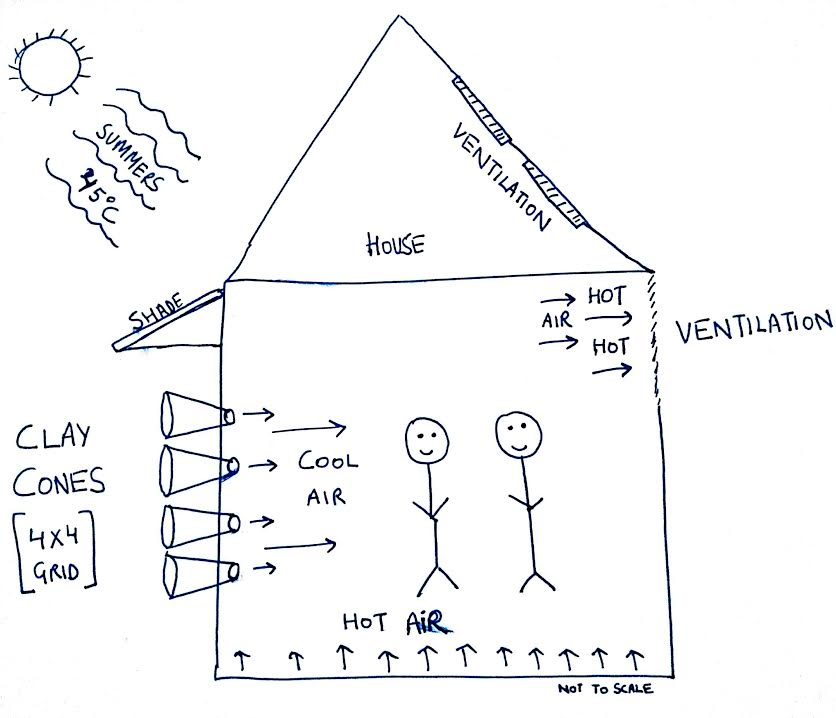 SUMMERS
45°C
VENTILATION
HOUSE
SHADE
HOT
AIR
HOT
VENTILATION
CLAY
CONES
[4X4
GRID]
COOL
AIR
HOT AiR
NOT TO SCALE